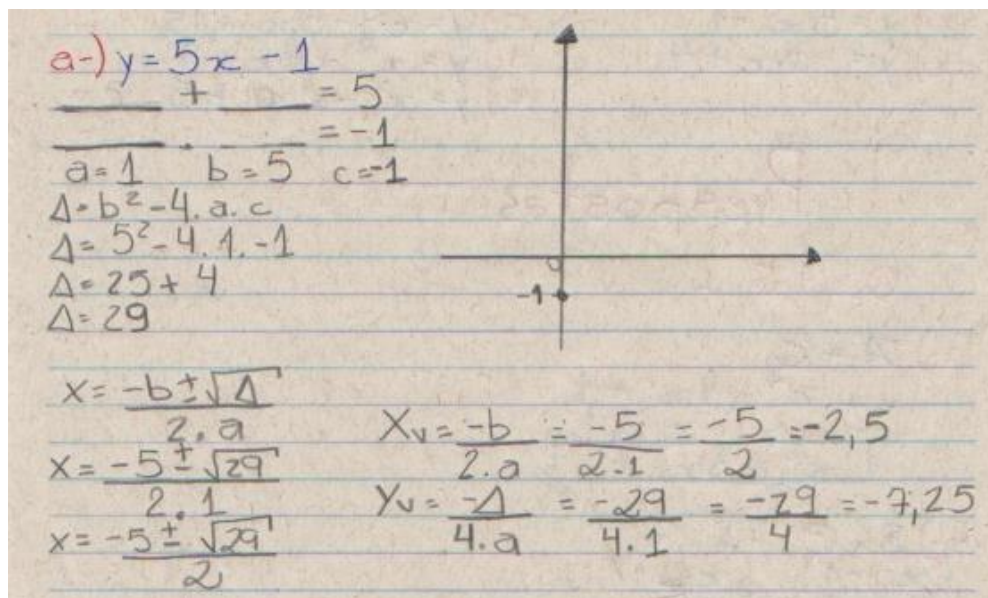 a-) y = 5x - 1
____ + ____ = 5
____ . ____ = -1
a = 1 b = 5 c = -1
Δ = b² - 4. a. c
Δ = 5² - 4. 1. -1
Δ = 25 + 4
Δ = 29
-1
x = -b ± √Δ / 2. a
x = -5 ± √29 / 2. 1
x = -5 ± √29 / 2
Xv = -b / 2.a = -5 / 2.1 = -5 / 2 = -2,5
Yv = -Δ / 4.a = -29 / 4.1 = -29 / 4 = -7,25